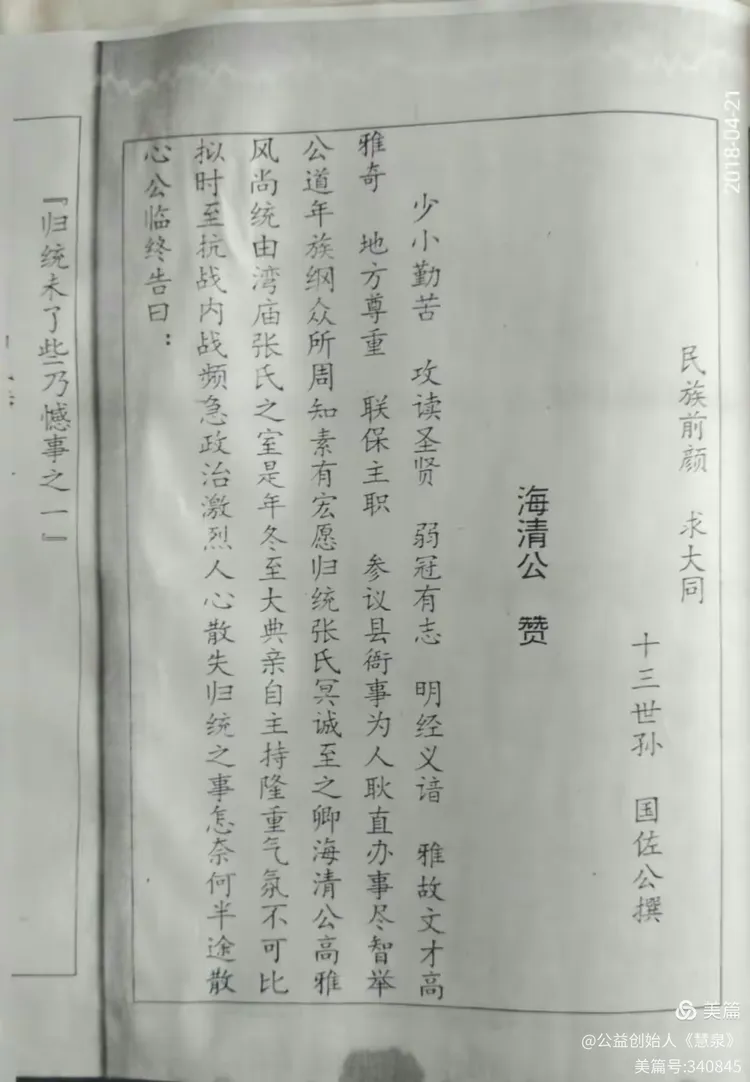 民族前颜 求大同
十三世孙 国佐公撰
海清公 赞
少小勤苦 攻读圣贤 弱冠有志 明经义谙 雅故文才高
雅奇 地方尊重 联保主职 参议县衙事为人耿直办事尽智举
公道年族纲众所周知素有宏愿归统张氏冥诚至之卿海清公高雅
风尚统由湾庙张氏之室是年冬至大典亲自主持隆重气氛不可比
拟时至抗战内战频急政治激烈人心散失归统之事怎奈何半途散
心公临终告曰：
『归统未了些乃憾事之一』
2018-04-21
美篇
@公益创始人《慧泉》
美篇号:340845